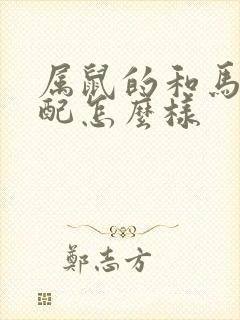 属鼠的和馬
配怎麼樣
鄭志方